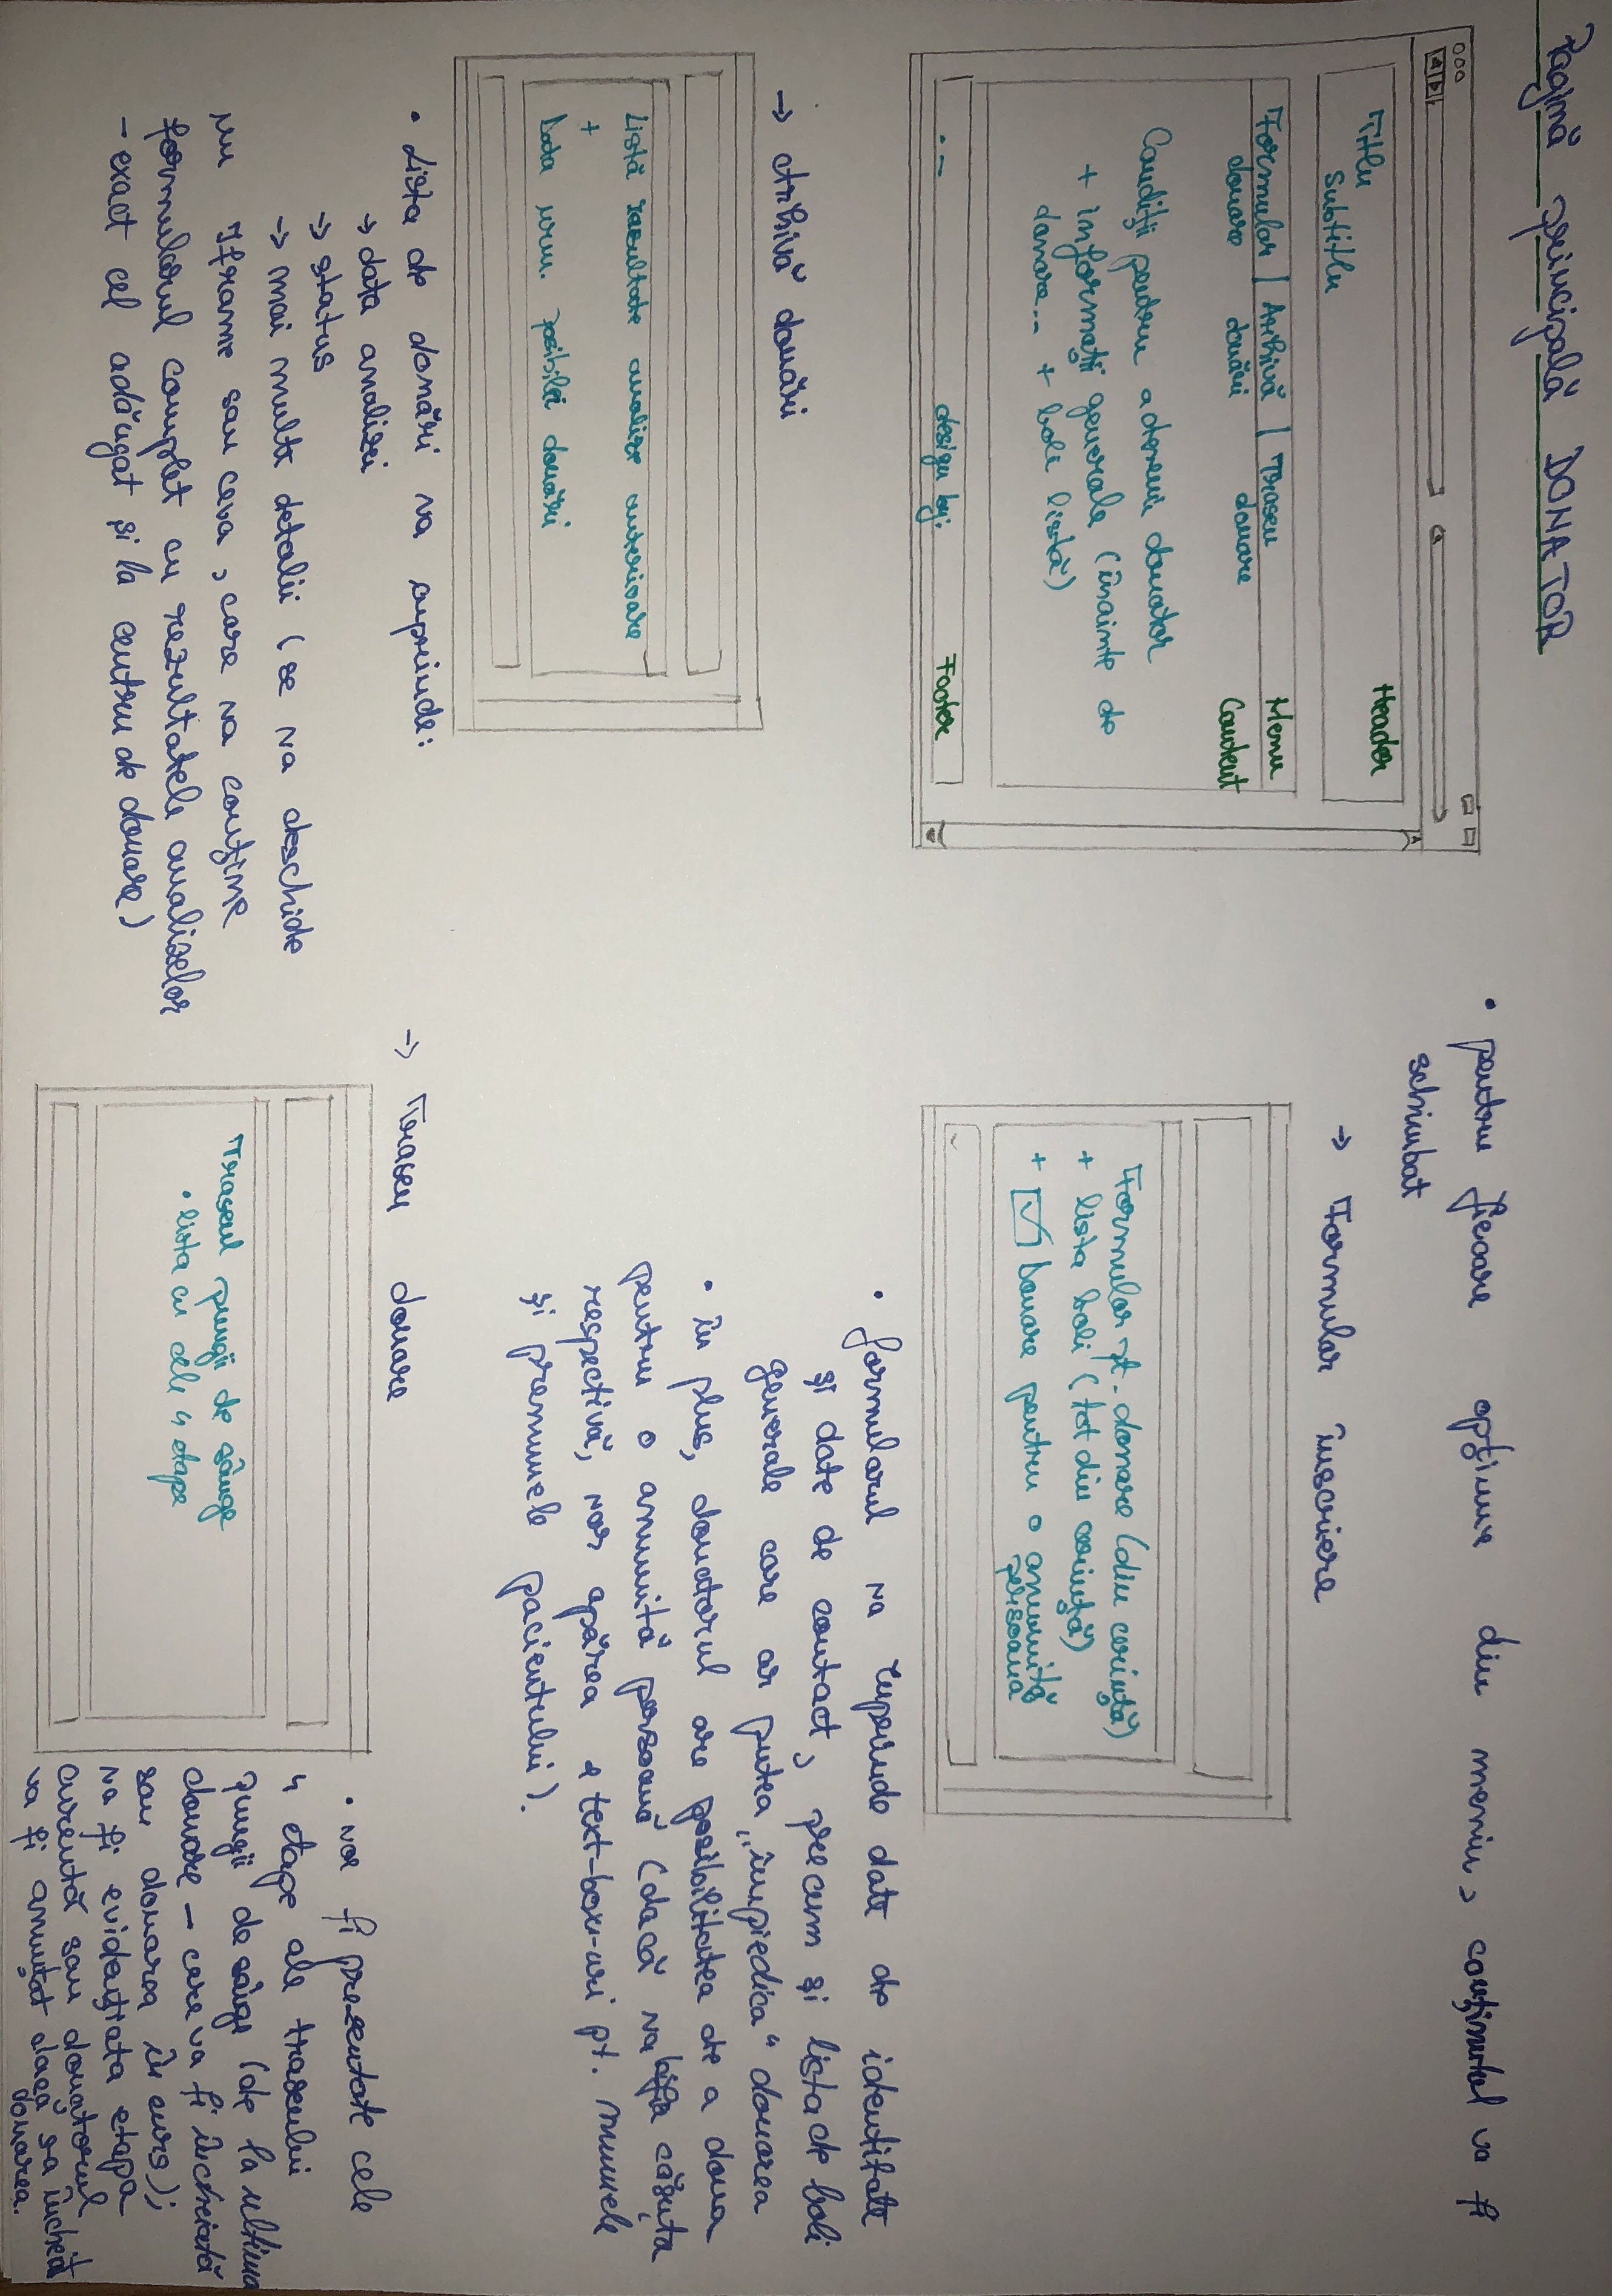 Pagină principală DONATOR
Titlu
Header
Subtitlu
Formular | Arhivă | Traseu
Menu
donare donări donare
Content
Condiții pentru a deveni donator
+ informații generale (înainte de
donare... + boli listă)
design by:
Footer
• pentru fiecare opțiune din meniu, conținutul va fi
schimbat
→ Formular înscriere
Formular pt. donare (din cerință)
+ lista boli (tot din cerință)
+ Donare pentru o anumită
persoană
• formularul va cuprinde date de identitate
și date de contact, precum și lista de boli
generale care ar putea „împiedica" donarea
• în plus, donatorul are posibilitatea de a dona
pentru o anumită persoană (dacă va bifa căsuța
respectivă, vor apărea text-box-uri pt. numele
și prenumele pacientului).
→ Arhivă donări
Listă rezultate analize anterioare
+
Data urm. posibilei donări
• Lista de donări va cuprinde:
→ data analizei
→ status
→ mai multe detalii (se va deschide
un Iframe sau ceva, care va conține
formularul complet cu rezultatele analizelor
- exact cel adăugat și la centru de donare)
→ Traseu donare
Traseul pungii de sânge
• lista cu cele 4 etape
• vor fi prezentate cele
4 etape ale traseului
pungii de sânge (de la ultima
donare – care va fi încheiată
sau donarea în curs);
va fi evidențiata etapa
curentă sau donatorul
va fi anunțat dacă s-a încheiat
donarea.